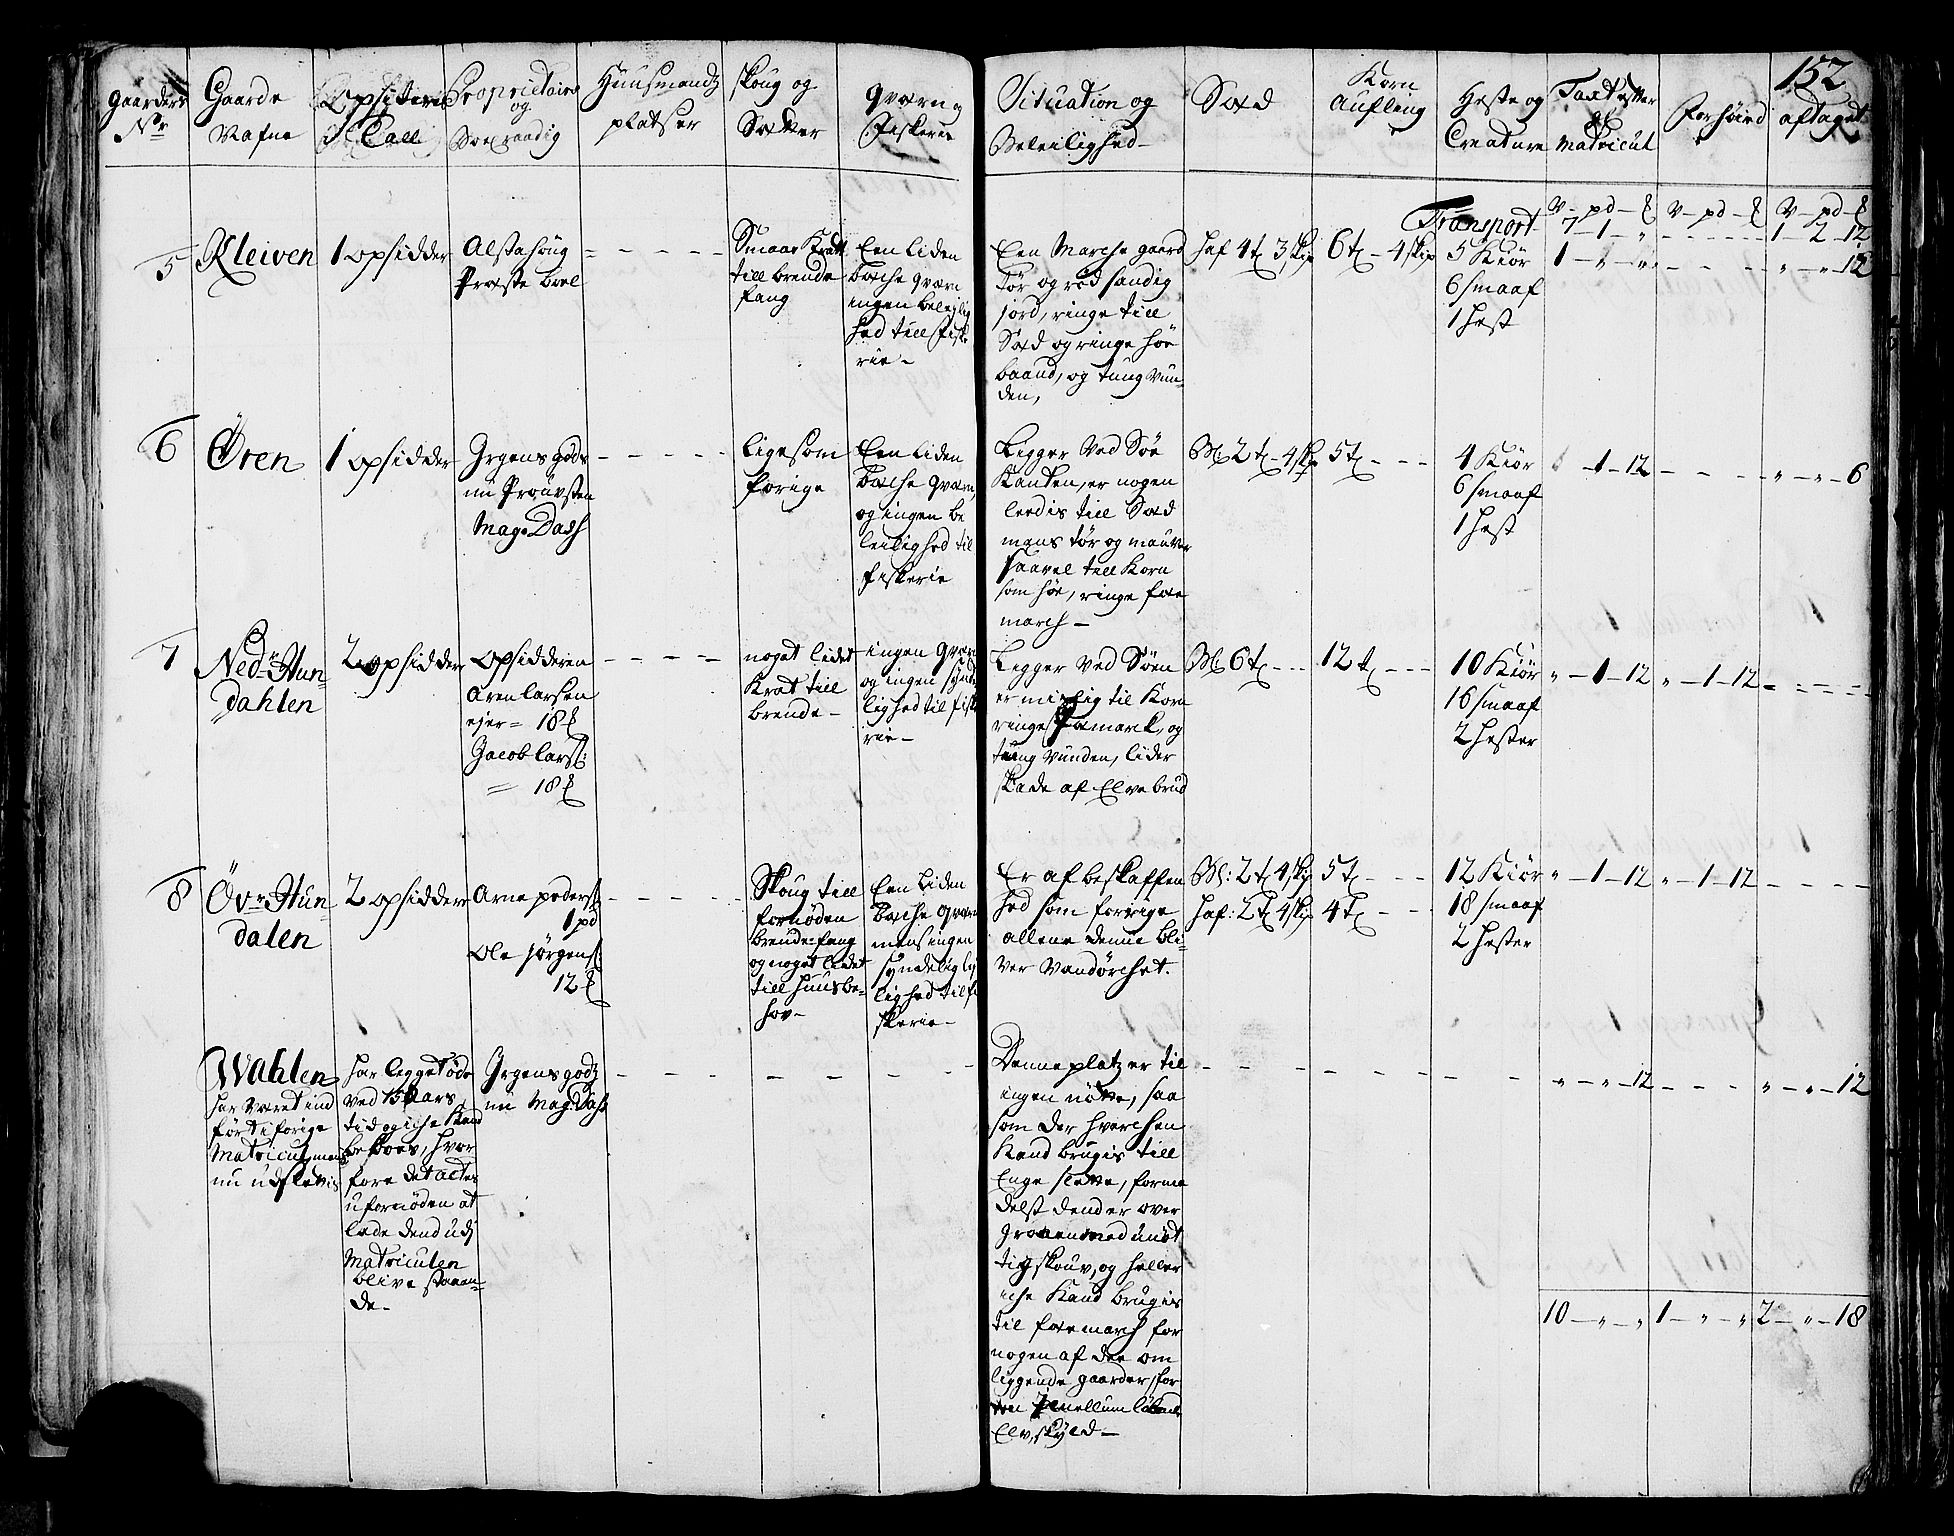 152
Gaardens
No
Gaarde
Nafne
Opsiddere
Tall
Proprietairer
og
Huusmandz
platser
Skoug og
Sætter
Qværn og
Fiskerie
Situation og
Beleilighed
Sæd
Korn
Aufleng
Heste og
Creature
Taxt efter
Matricul
Forhøied
aftaget
V - pd - V - pd - V - pd -
Transport 7 - 1 - " - - - - 1 - 2 - 12
5
Kleiven
1 opsidder
Alstahoug
Præste boel
Smaae Kratt
till brende
fang
Een liden
bæche qværn
ingen beleilig
hed till fiske
rie -
Een Marche gaard
tør og sandig
jord, ringe till
Sæd og ringe høe
baand, og tung vun-
den,
Haf 4 t 3 skp
6 t - 4 skp
5 Kiør
6 smaaf
1 hest
1 - " - " - - - " - " - 12
6
Ören
1 opsidder
Jrgens gods
nu Prouvsten
Mag. Dass
lige som
forige
Een liden
bæche qværn,
og ingen be
leilighed til
fiskerie
Ligger ved Søe
Kanten, er nogen
ledis till Sæd
mens tør og mauver
saavel till Korn
som høe, ringe fæe
march -
Bl 2 t - 4 skp
5 t - - -
4 Kiør
6 smaaf
1 hest
- 1 - 12 - - - " - " - 6
7
Ned: Hun-
dahlen
2 opsidder
Opsidderen
Aren larsen
ejer = 18
Jacob lars:
= 18
noget lidet
Krat till
brende -
ingen qværn
og ingen synde
lighed til fiske
rie -
Ligger ved Søen
er mislig til Korn
ringe fæmarck, og
tung vunden, lider
skade af Elve brud
Bl 6 t - - -
12 t - - -
10 Kiør
16 smaaf
2 hester
" - 1 - 12 " - 1 - 12 - - - -
8
Öv: Hun-
dalen
2 opsidder
Arne peders:
1 pd
Ole Jørgens:
12
Skoug till
fornøden
brende-fang
og noget lidet
till huusbe-
hov -
Een liden
bæche qværn
mens ingen
syndelig
lighed til fi
skerie -
Er af beskaffen
hed som forrige
allene denne bli-
ver vandørchet.
Bl: 2 t 4 skp
haf: 2 t 4 skp
5 t - - -
4 t - - -
12 Kiør
18 smaaf
2 hester
" - 1 - 12 " - 1 - 12 - - - -
Wahlen
har været ind
ført i forige
Matricul, mens
nu udslettis
har ligget øde
ved 15 aars
tid og iche Kand
besoes, hvor
fore det actes
ufornøden at
lade dend udj
Matriculen
blive staaen-
de -
Jrgens godz
nu Mag: Dass
Denne platz er til
ingen nøtte, saa
som der hverchen
Kand brugis till
Enge slette, forme
delst dend er over
groen med unøt
tig skouv, og heller
iche Kand brugis
til fæemarch for
nogen af de om
liggende gaarder, for
Elv, skyld -
" - " - 12 - - - " - " - 12
10 - " - " 1 - " - " 2 - " - 18